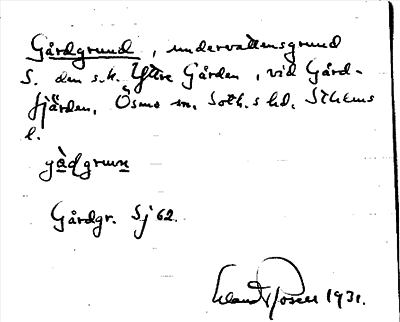 Gårdgrund, undervattensgrund
S. den s.k. Yttre Gården, vid Gård-
fjärden. Ösmo sn. Soth.s hd. Sthlms
l.
gàḍgrun
Gårdgr. Sj 62.
Roser 1931.